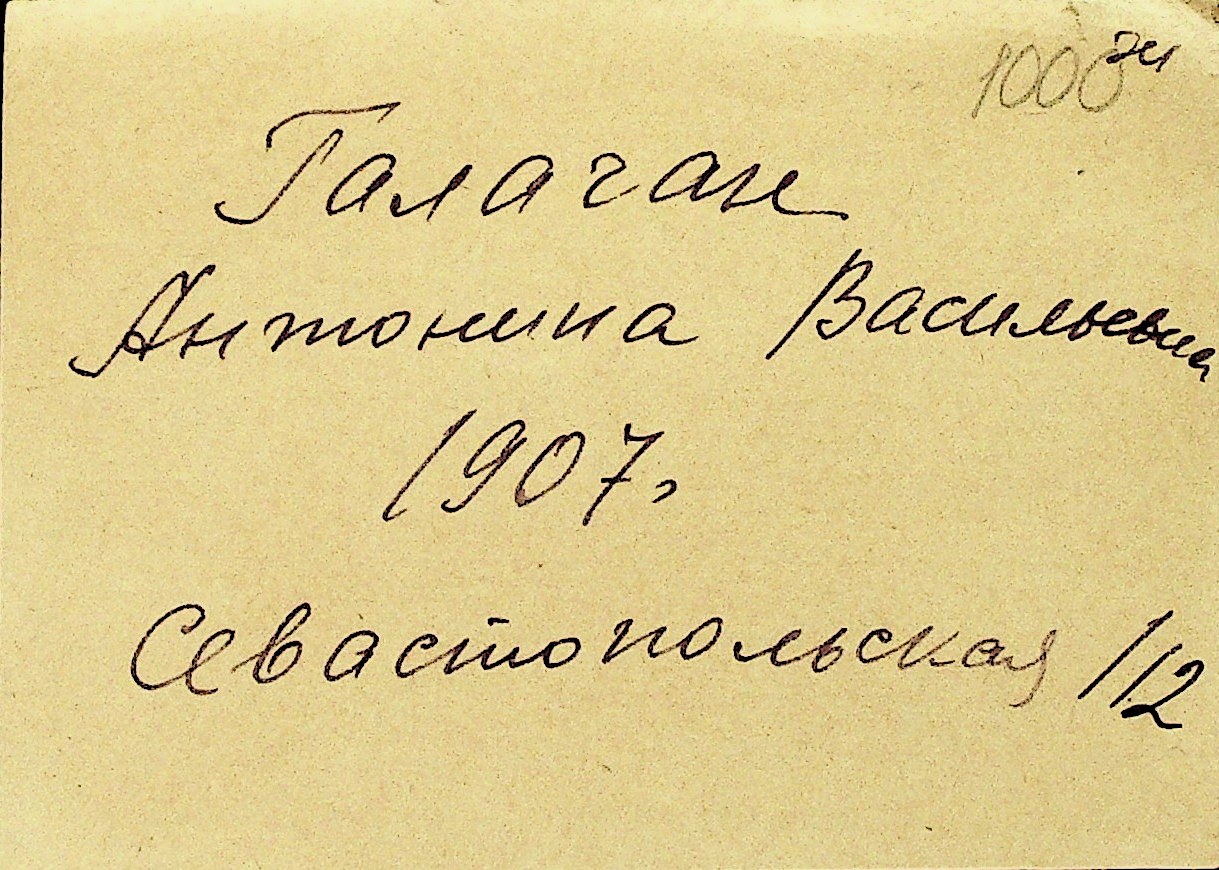 1000
Галаган
Антонина Васильевна
1907г
Севастопольская 112